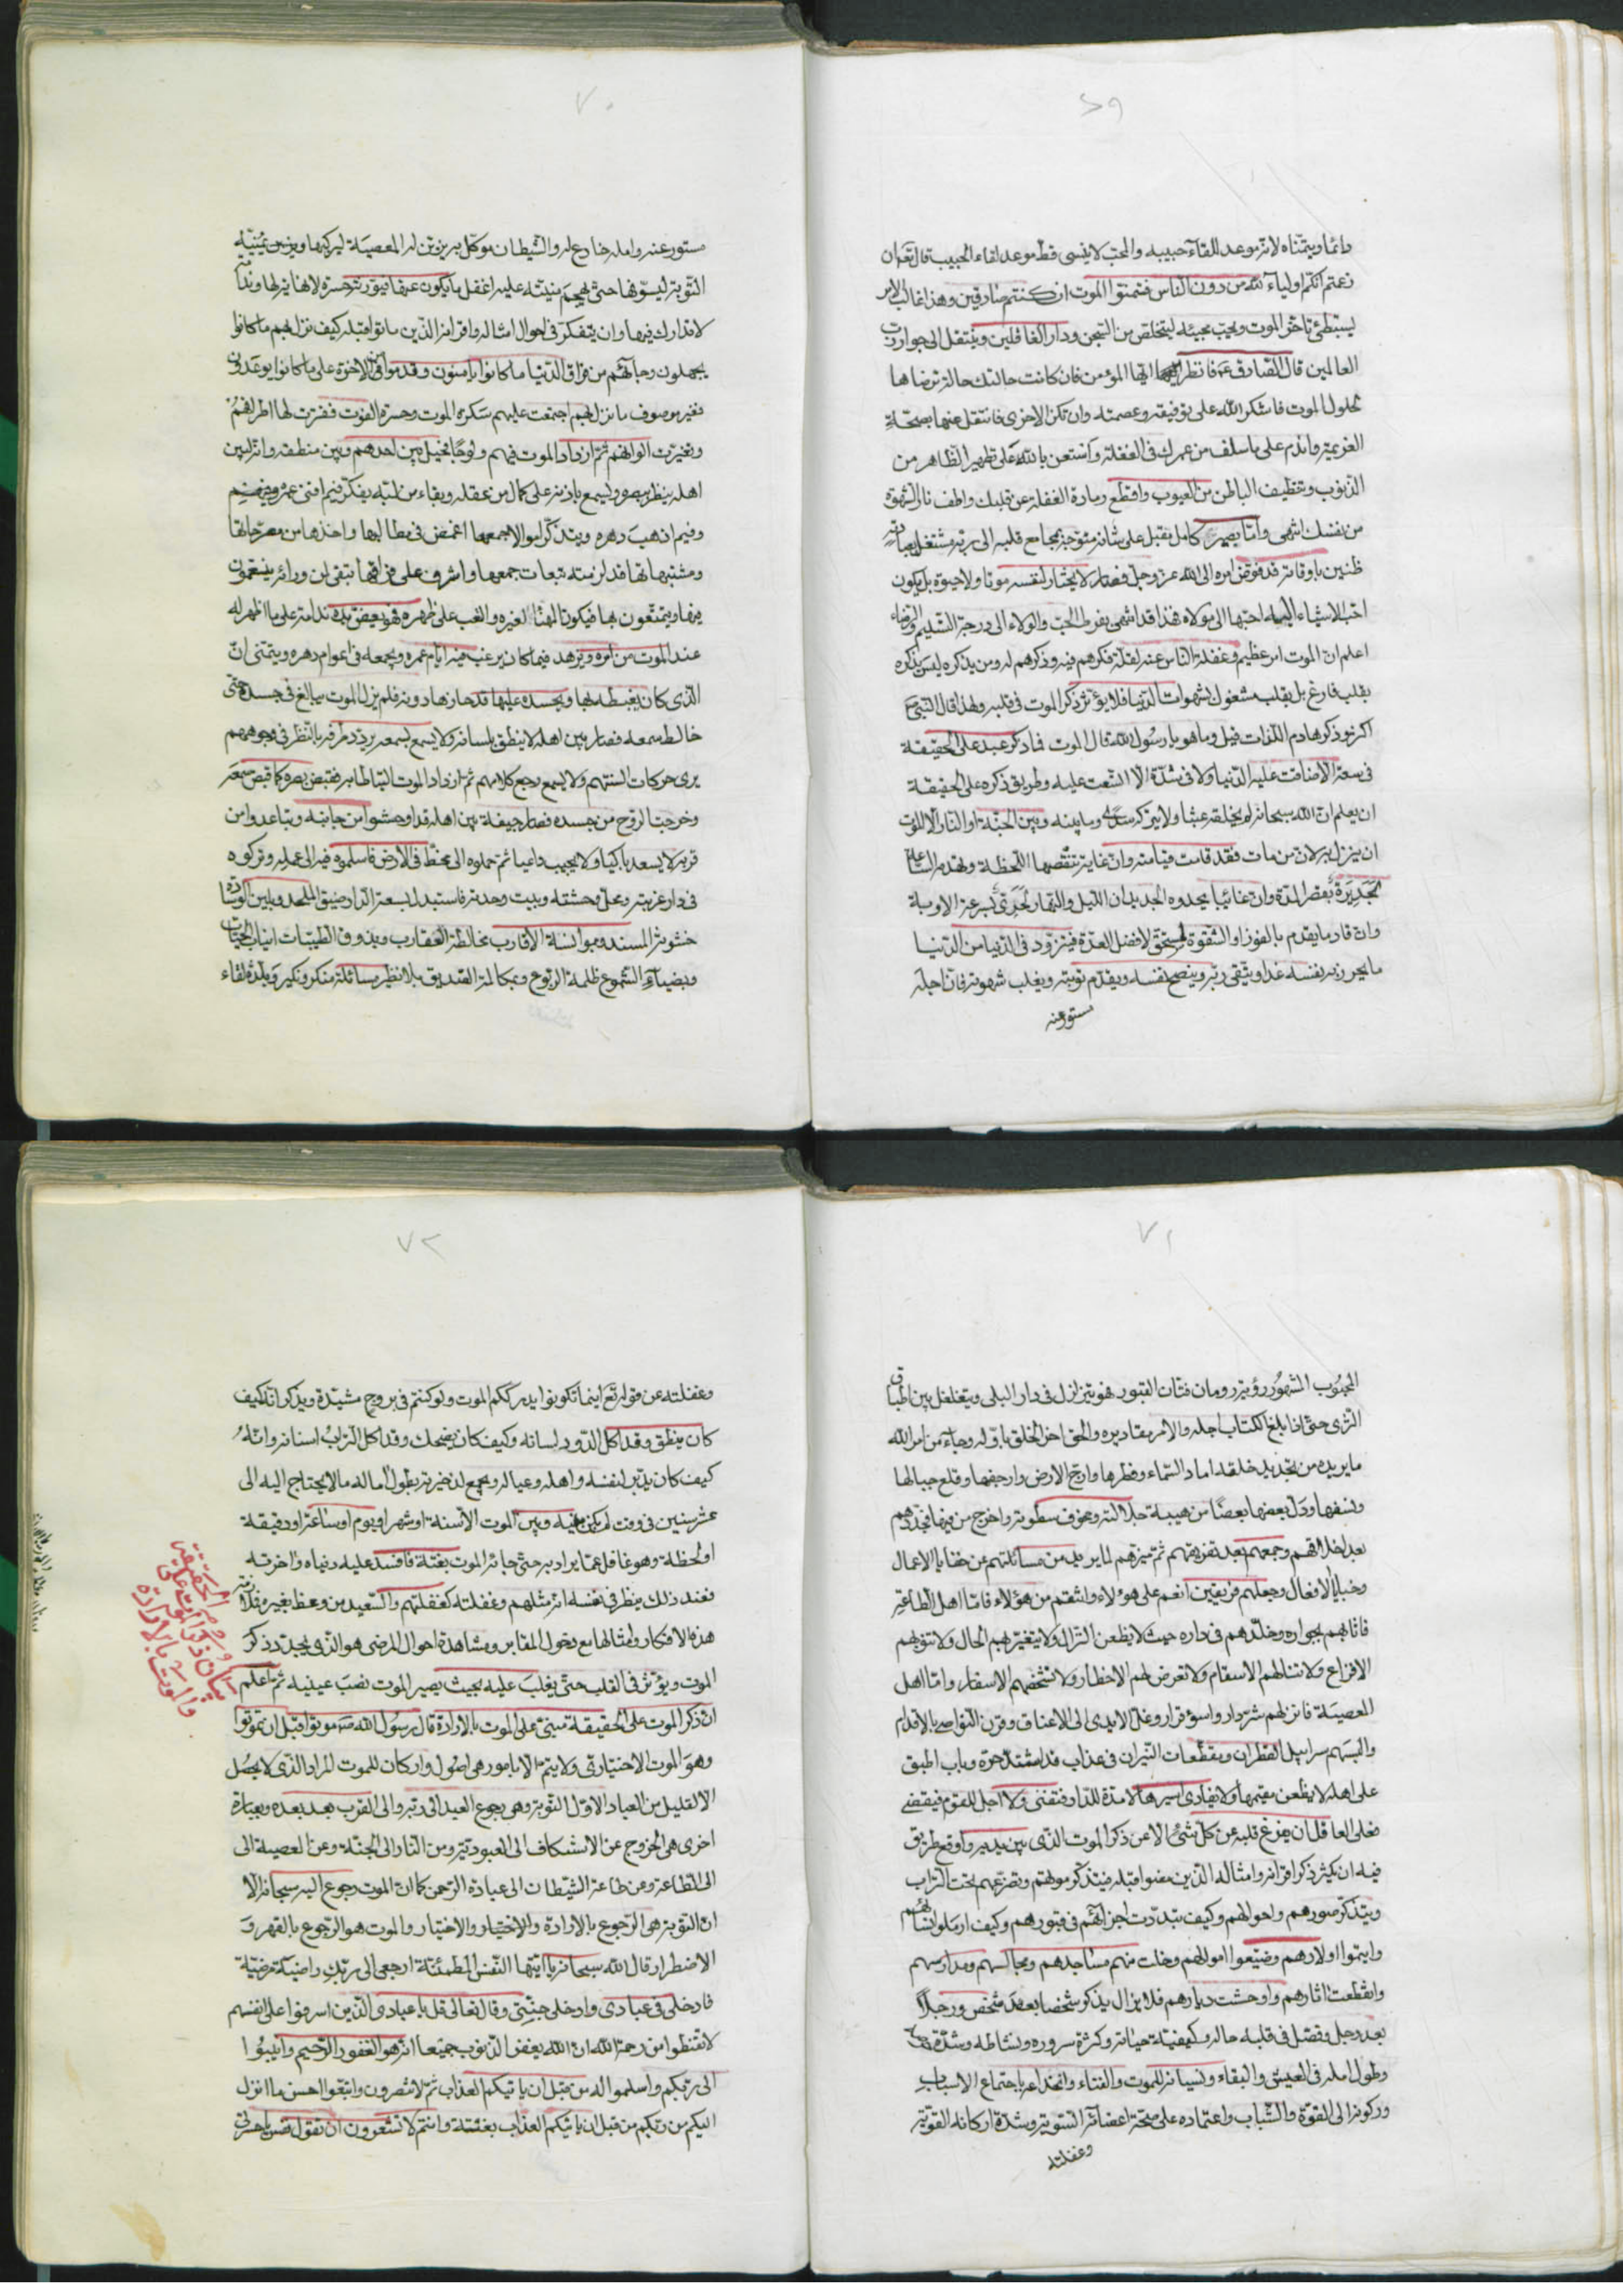 ٦٩
دائما ويتمناه لانه موعد للقاء حبيبه والمحب لا ينسى قط موعد لقاء الحبيب قال تعم ان
زعمتم انكم اولياء لله من دون الناس فتمنوا الموت ان كنتم صادقين وهذا غالب الامر
يستبطئ تاخر الموت ويحب مجيئه ليتخلص من السجن ودار الغافلين وينتقل الى جوار رب
العالمين قال الصادق ع فانظر ايها المؤمن فان كانت حالتك حالة ترضاها
لحلول الموت فاشكر الله على توفيقه وعصمته وان تكن الاخرى فانتقل عنها بصحة
العزيمة واندم على ما سلف من عمرك في الغفلة واستعن بالله على تطهير الظاهر من
الذنوب وتنظيف الباطن من العيوب واقطع زيادة الغفلة عن قلبك واطف نار الشهوة
من نفسك انتهى واما بصير كامل يقبل على شانه متوجه بمجامع قلبه الى ربه مشتغل بعبادته
ظنين باوقاته قد فوض امره الى الله عز وجل فصار لا يختار لنفسه موتا ولا حيوة بل يكون
احب الاشياء اليه احبها الى مولاه فهذا قد انتهى بفرط الحب والولاء الى درجة التسليم والرضاء
اعلم ان الموت امر عظيم وغفلة الناس عنه لقلة فكرهم فيه وذكرهم له ومن يذكره ليس يذكره
بقلب فارغ بل بقلب مشغول بشهوات الدنيا فلا يؤثر ذكر الموت في قلبه ولهذا قال النبي ص
اكثروا ذكر هادم اللذات قيل وما هو يا رسول الله قال الموت فما ذكره عبد على الحقيقة
في سعة الا ضاقت عليه الدنيا ولا في شدة الا اتسعت عليه وطريق ذكره على الحقيقة
ان يعلم ان الله سبحانه لم يخلقه عبثا ولا يتركه سدى وما بينه وبين الجنة او النار الا الموت
ان ينزل به لان من مات فقد قامت قيامته وان غاية تنقصها اللحظة وتهدمها الساعة
لجديرة بقصر المدة وان غائبا يحدوه الجديدان الليل والنهار لحري بسرعة الاوبة
وان قادما يقدم بالفوز او الشقوة لمستحق لافضل العدة فيتزود في الدنيا من الدنيا
ما يحرز به نفسه غدا ويتقي ربه وينصح نفسه ويقدم توبته ويغلب شهوته فان اجله
مستور عنه
٧٠
مستور عنه وامله خادع له والشيطان موكل به يزين له المعصية ليركبها ويزين يمنيه
التوبة ليسوفها حتى تهجم منيته عليه اغفل ما يكون عنها فيورثه حسرة لانهاية لها وندما
لا تدارك فيها وان يتفكر في احوال امثاله واقرانه الذين ماتوا قبله كيف نزل بهم ما كانوا
يجهلون وجاءهم من فراق الدنيا ما كانوا يامنون وقدموا من الاخرة على ما كانوا يوعدون
فغير موصوف ما نزل بهم اجتمعت عليهم سكرة الموت وحسرة الفوت ففترت لها اطرافهم
وتغيرت الوانهم ثم ازداد الموت فيهم ولوجا فحيل بين احدهم وبين منطقه وانه لبين
اهله ينظر ببصره ويسمع باذنه على كمال من عقله وبقاء من لبه يفكر فيم افنى عمره
وفيم اذهب دهره ويتذكر اموالا جمعها اغمض في مطالبها واخذها من مصرحاتها
ومشتبهاتها قد لزمته تبعات جمعها واشرف على فراقها تبقى لمن ورائه ينعمون
فيها ويتمتعون بها فيكون المهنا لغيره والعب على ظهره فهو يعض يده ندامة على ما اظهر له
عند الموت من امره ويزهد فيما كان يرغب فيه ايام عمره ويجمعه في اعوام دهره ويتمنى ان
الذي كان يغبطه بها ويحسده عليها قد حازها دونه فلم يزل الموت يبالغ في جسده حتى
خالط سمعه فصار بين اهله لا ينطق بلسانه ولا يسمع بسمعه يردد طرفه بالنظر في وجوههم
يرى حركات السنتهم ولا يسمع رجع كلامهم ثم ازداد الموت التياطا به فقبض بصره كما قبض سمعه
وخرجت الروح من جسده فصار جيفة بين اهله قد اوحشوا من جانبه وتباعدوا من
قربه لا يسعد باكيا ولا يجيب داعيا ثم حملوه الى مخط في الارض فاسلموه فيه الى عمله وتركوه
في دار غربته ومحل وحشته وبيت وحدته فاستبدل بسعة الدار ضيق الملحد وبلين الوسادة
خشونة المسند وبموانسة الاقارب مخالطة العقارب وبذوق الطيبات انياب الحيات
وبضياء الشموع ظلمة الربوع وبمكالمة الصديق بلا نظير مسائلة منكر ونكير وبلذة لقاء
٧١
المحبوب المشهور رؤية رومان فتان القبور فهو يتزلزل في دار البلى ويتغلغل بين اطباق
الثرى حتى اذا بلغ الكتاب اجله والامر مقاديره والحق اخر الخلق باوله وجاء من امر الله
ما يريده من تجديد خلقه اماد السماء وفطرها وارج الارض وارجفها وقلع جبالها
ونسفها ودك بعضها بعضا من هيبة جلالته وخوف سطوته واخرج من فيها فجددهم
بعد اخلاقهم وجمعهم بعد تفريقهم ثم ميزهم لما يريد من مسائلتهم عن خفايا الاعمال
وخبايا الافعال وجعلهم فريقين انعم على هؤلاء وانتقم من هؤلاء فاما اهل الطاعة
فاثابهم بجواره وخلدهم في داره حيث لا يظعن النزال ولا يتغير بهم الحال ولا تنوبهم
الافزاع ولا تنالهم الاسقام ولا تعرض لهم الاخطار ولا تشخصهم الاسفار واما اهل
المعصية فانزلهم شر دار واسوء قرار وغل الايدي الى الاعناق وقرن النواصي بالاقدام
والبسهم سرابيل القطران ومقطعات النيران في عذاب قد اشتد حره وباب اطبق
على اهله لا يظعن مقيمها ولا يفادى اسيرها لا مدة للدار فتفنى ولا اجل للقوم فيقضى
فعلى العاقل ان يفرغ قلبه عن كل شئ الا عن ذكر الموت الذي بين يديه واوقع طريق
فيه ان يكثر ذكر اقرانه وامثاله الذين مضوا قبله فيتذكر موتهم وتضرعهم تحت التراب
ويتذكر صورهم واحوالهم وكيف تبددت اجزائهم في قبورهم وكيف ارملوا نسائهم
وايتموا اولادهم وضيعوا اموالهم وخلت منهم مساجدهم ومجالسهم ومدارسهم
وانقطعت اثارهم واوحشت ديارهم فلا يزال يذكر شخصا بعد شخص ورجلا
بعد رجل وفصل في قلبه حاله وكيفية حياته وكثرة سروره ونشاطه وشدة
وطول امله في العيش والبقاء ونسيانه للموت والفناء وانخداعه باجتماع الاسباب
وركونه الى القوة والشباب واعتماده على صحة اعضائه السوية وشدة اركانه القوية
وغفلته
٧٢
وغفلته عن قوله تع اينما تكونوا يدرككم الموت ولو كنتم في بروج مشيدة ويذكر انه كيف
كان ينطق وقد اكل الدود لسانه وكيف كان يضحك وقد اكل التراب اسنانه وانه
كيف كان يدبر لنفسه واهله وعياله ويجمع لذخيرته بطول اماله ما لا يحتاج اليه الى
عشر سنين في وقت لم يكن بينه وبين الموت الا سنة او شهر او يوم او ساعة او دقيقة
او لحظة وهو غافل عما يراد به حتى جائه الموت بغتة فافسد عليه دنياه واخرته
فعند ذلك ينظر في نفسه انه مثلهم وغفلته كغفلتهم والسعيد من وعظ بغيره فملازمة
هذه الافكار وامثالها مع دخول المقابر ومشاهدة احوال المرضى هو الذي يجدد ذكر
الموت ويؤثر في القلب حتى يغلب عليه بحيث يصير الموت نصب عينيه ثم اعلم
ان ذكر الموت على الحقيقة مبنى على الموت بالارادة قال رسول الله ص موتوا قبل ان تموتوا
وهو الموت الاختياري ولا يتم الا بامور هي اصول واركان للموت المراد الذي لا يحصل
الا لقليل من العباد الاول التوبة وهي رجوع العبد الى ربه والى القرب بعد بعده وبعبارة
اخرى هي الخروج عن الاستنكاف الى العبودية ومن النار الى الجنة وعن المعصية الى
الى الطاعة وعن طاعة الشيطان الى عبادة الرحمن كما ان الموت رجوع اليه سبحانه الا
ان التوبة هي الرجوع بالارادة والاختيار والاختيار والموت هو الرجوع بالقهر و
الاضطرار قال الله سبحانه يا ايتها النفس المطمئنة ارجعي الى ربك راضية مرضية
فادخلي في عبادي وادخلي جنتي وقال تعالى قل يا عبادي الذين اسرفوا على انفسهم
لا تقنطوا من رحمة الله ان الله يغفر الذنوب جميعا انه هو الغفور الرحيم وانيبوا
الى ربكم واسلموا له من قبل ان ياتيكم العذاب ثم لا تنصرون واتبعوا احسن ما انزل
اليكم من ربكم من قبل ان ياتيكم العذاب بغتة وانتم لا تشعرون ان تقول نفس يا حسرتى
الحقيقة
بيان ذكر الموت على
والموت بالارادة